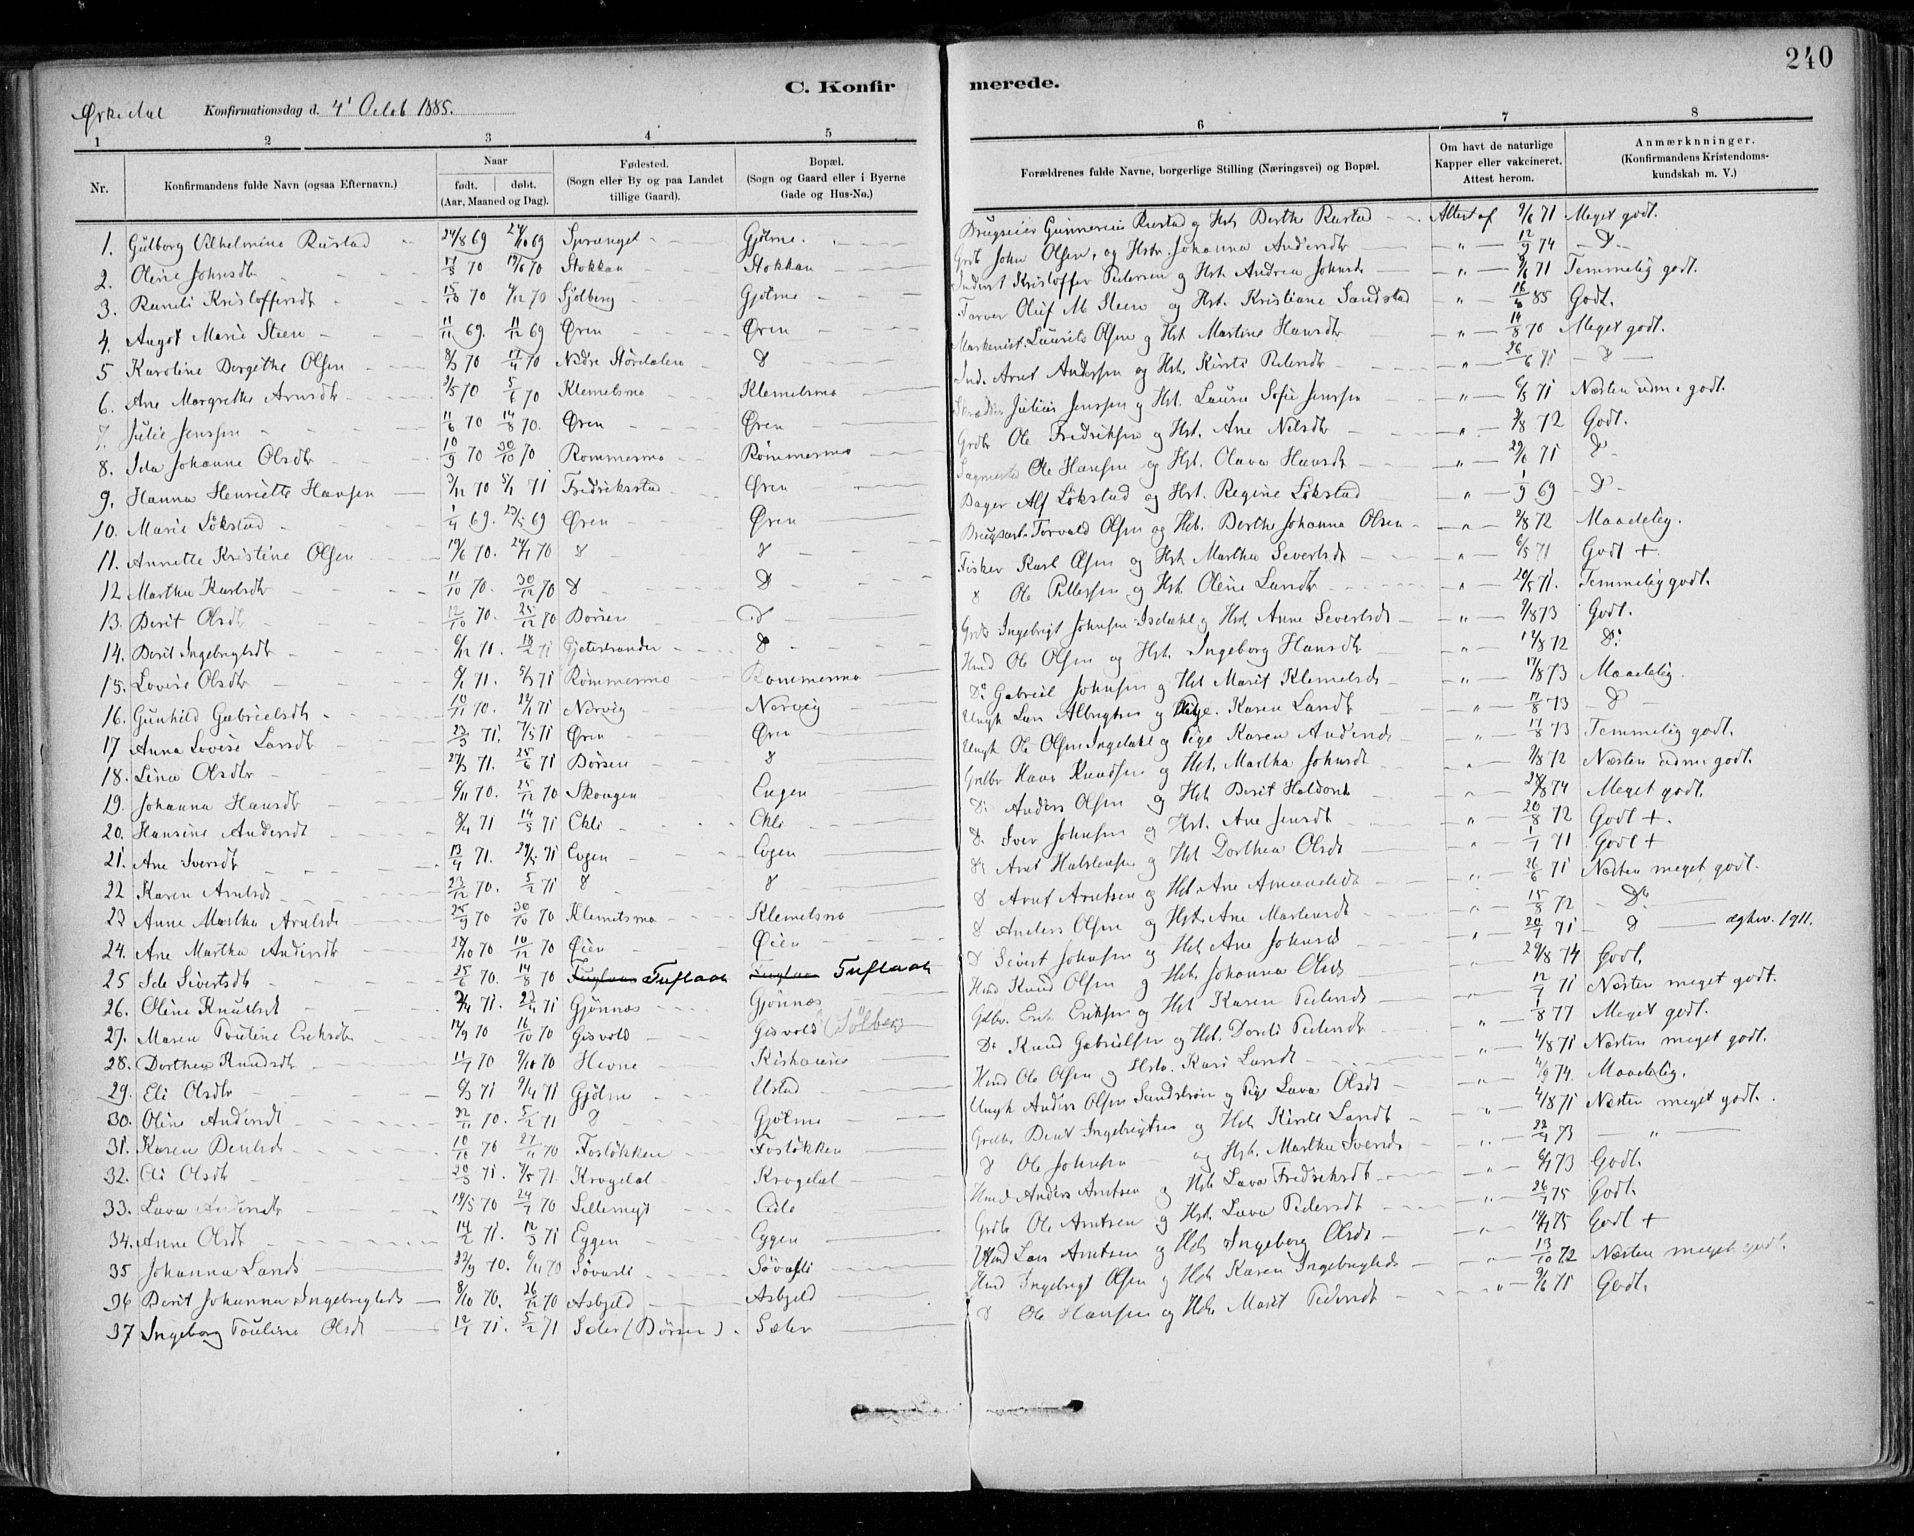 240
C. Konfirmerede.
Ørkedal Konfirmationsdag d. 4' Octob 1885.
1 2 3 4 5 6 7 8
Nr. Konfirmandens fulde Navn (ogsaa Efternavn.) Naar født. døbt. (Aar, Maaned og Dag). Fødested. (Sogn eller By og paa Landet tillige Gaard). Bopæl. (Sogn og Gaard eller i Byerne Gade og Hus-No.) Forældrenes fulde Navne, borgerlige Stilling (Næringsvei) og Bopæl. Om havt de naturlige Kapper eller vakcineret. Attest herom. Anmærknninger. (Konfirmandens Kristendomskundskab m. V.)
1. Gulborg Vilhelmine Rustad 24/8 69 69 Gjølme Brugseier Gunnerius Rustad og Hst Berthe Rustad Attest af 9/6 71 Meget godt.
2. Oline Johnsdtr 70 19/6 70 Stokkan Stokkan Grdb John Olsen, og Hstr. Johanna Andersdtr " 12/9 74 D
3. Randi Kristoffersdt 15/10 70 70 Sjølberg Gjølme Inderst Kristoffer Pedersen og Hst Andrea Johnsd " 71 Temmelig godt.
4. Angot Marie Steen 11/11 69. 11/12 69 Øren Øren Farver Oluf M Steen og Hst. Kristiane Sandstad " 85 Godt.
5 Karoline Bergithe Olsen 8/3 70 17/4 70 Nedre Størdalen D Laurits Olsen og Hst Martine Hansdtr " 14/8 70 Meget godt.
6. Ane Margrethe Arntsdtr 3/5 70 5/6 70 Klemetsmo Klemetsmo Ind. Arnt Andersen og Hst. Kirsti Pedersdtr " 26/6 71 D
7. Julie Jenssen 11/6 70 14/8 70. Øren Øren Skrædder Julius Jenssen og Hst. Laura Sofie Jenssen " 6/5 71 Næsten udm. godt.
8. Ida Johanne Olsdtr 10/9 70 30/10 70 Rommesmo Rømmesmo Grdb Ole Fredriksen og Hst. Ane Nilsdtr " 72 Godt.
9. Hanna Henriette Hansen 3/12 70 5/1 71 Fredriksstad Øren Sagmester Ole Hansen og Hst. Olava Hansdt " 29/6 71 D
10. Marie Løkstad 1/4 69. 23/5 69 Øren Øren Bager Alf Løkstad og Hst. Regine Løkstad " 1/9 69 D
11. Annette Kristine Olsen 19/6 70. 24/7 70 D D Brugsarb. Torvald Olsen og Hst. Berthe Johanna Olsen " 2/8 72 Maadelig.
12 Martha Karlsdtr 11/10 70. 30/12 70 D D Fisker Karl Olsen og Hst Martha Sivertsdt " 6/5 71 Godt +
13. Berit Olsdtr 12/10 70. 25/12 70 Børsen D D Ole Pettersen og Hst. Oline Larsdtr " 20/5 71. Temmelig godt.
14. Berit Ingebrigtsdt 6/12 71. 18/2 71 Gjetestrander D Grdb Ingebrigt Johnsen Isdahl og Hst Anne Sivertsdt " 73 Godt.
15. Lovise Olsdtr 71. 5/3 71 Rømmesmo Rommesmo Hmd Ole Olsen og Hst. Ingeborg Hansdtr " 14/8 72 Do
16. Gunhild Gabrielsdt 10/11 70. 22/1 71 Norvig Norvig Do Gabriel Johnsen og Hst Marit Klemetsdt " 17/8 73 Maadelig.
17 Anna Lovise Larsdtr 23/3 71. 7/5 71 Øren Øren Ungk Lars Albrigtsen og Pige. Karen Larsdt " 17/8 73 D
18. Lina Olsdtr 27/3 71. 25/6 71 Børsen D Ungk Ole Olsen Ingdahl og Pige Karen Andersd " 17/8 73 Temmelig godt.
19. Johanna Hansdt 6/11 70. 25/12 70 Skougen Engen Grdbr Hans Knudsen og Hst. Martha Johnsdt " 72 Næsten udm. godt.
20. Hansine Andersdt 8/4 71 14/5 71 Ekli Ekli D: Anders Olsen og Hst Berit Haldorst " 28/8 74 Meget godt.
21. Ane Iversdt 13/4 71. 29/5 71 Evgen Evgen D. Iver Johnsen og Hst. Ane Jensdt " 20/8 72 Godt +.
22 Karen Arntsdt 23/12 70. 5/2 71 D D D Arnt Halstensen og Hst Dorthea Olsdt " 1/7 71 Godt +
23 Anne Martha Arntsdt 25/9 70 30/10 70 Klemetsmo Klemetsmo D Arnt Arntsen og Hst. Ane Amundsdt " 26/6 71 Næsten meget godt.
24. Ane Martha Andersdt 27/10 70 10/12 70 Øien Øien D Anders Olsen og Hst. Ane Martensdt " 15/8 72 Do
25 Ide Sivertsdt 25/6 70. 14/8 70 Tuflaat Tuflaat D Sivert Johnsen og Hst Ane Johnsd " 20/7 71 D ægtev. 1911.
26. Oline Knutsdt 71. 71 Gjønnæs Gjønnæs Hmd Knud Olsen og Hst. Johanna Olsd " 29/8 74 Godt.
27. Maren Pouline Eriksdtr 12/9 70 16/10 70 Gisvold Gisvold (Sølberg Gdbr. Erik Eriksen og Hst Karen Pedersdt 12/7 71 Næsten meget godt.
28. Dorthea Knudsdt 11/7 70 9/10 70 Hevne Do Knud Gabrielsen og Hst. Dordi Pedersdt " 1/8 77 Meget godt.
29. Eli Olsdtr 71 71 Gjølme Ustad Hmd Ole Olsen og Hst. Kari Larsdt " 4/8 71 Næsten meget godt.
30. Oline Andersdt 22/11 70. 5/2 71 D Gjølme Ungk Anders Olsen Sundstrøm og Pige Lava Olsdt " 4/9 74. Maadelig.
31. Karen Bentsdt 10/10 70 27/11 70 Fosløkken Fosløkken Grdbr Bent Ingebrigtsen og Hst Kirsti Larsdt " 4/8 71 Næsten meget godt.
32. Eli Olsdt 20/3 71. 71 Krogdal Krogdal D Ole Johnsen og Hst. Martha Iversdt " 22/7 73 "
33. Lava Andersdtr 19/5 70 24/7 70 Hmd Anders Arntsen og Hst Lava Fredriksdt " 73 Godt.
34. Anne Olsdt 14/2 71. 12/3 71 Eggen Eggen Grdb Ole Arntsen og Hst. Lava Pedersdt " 26/7 75 Godt.
35 Johanna Larsdt 22/9 70. 70 Søvasli Søvasli Hmd Lars Arntsen og Hst. Ingeborg Olsdt " 75 Godt +
36 Berit Johanna Ingebrigtsdt 8/10 70. 26/12 70 Asbjeld Asbjeld Hmd Ingebrigt Olsen og Hst Karen Ingebrigtsdt " 13/10 72 Næsten meget godt.
37 Ingeborg Pouline Olsdt 12/1 71. 5/2 71 Seter (Børsen). Sæter D Ole Hansen og Hst. Marit Pedersdt " 9/6 71 Godt.